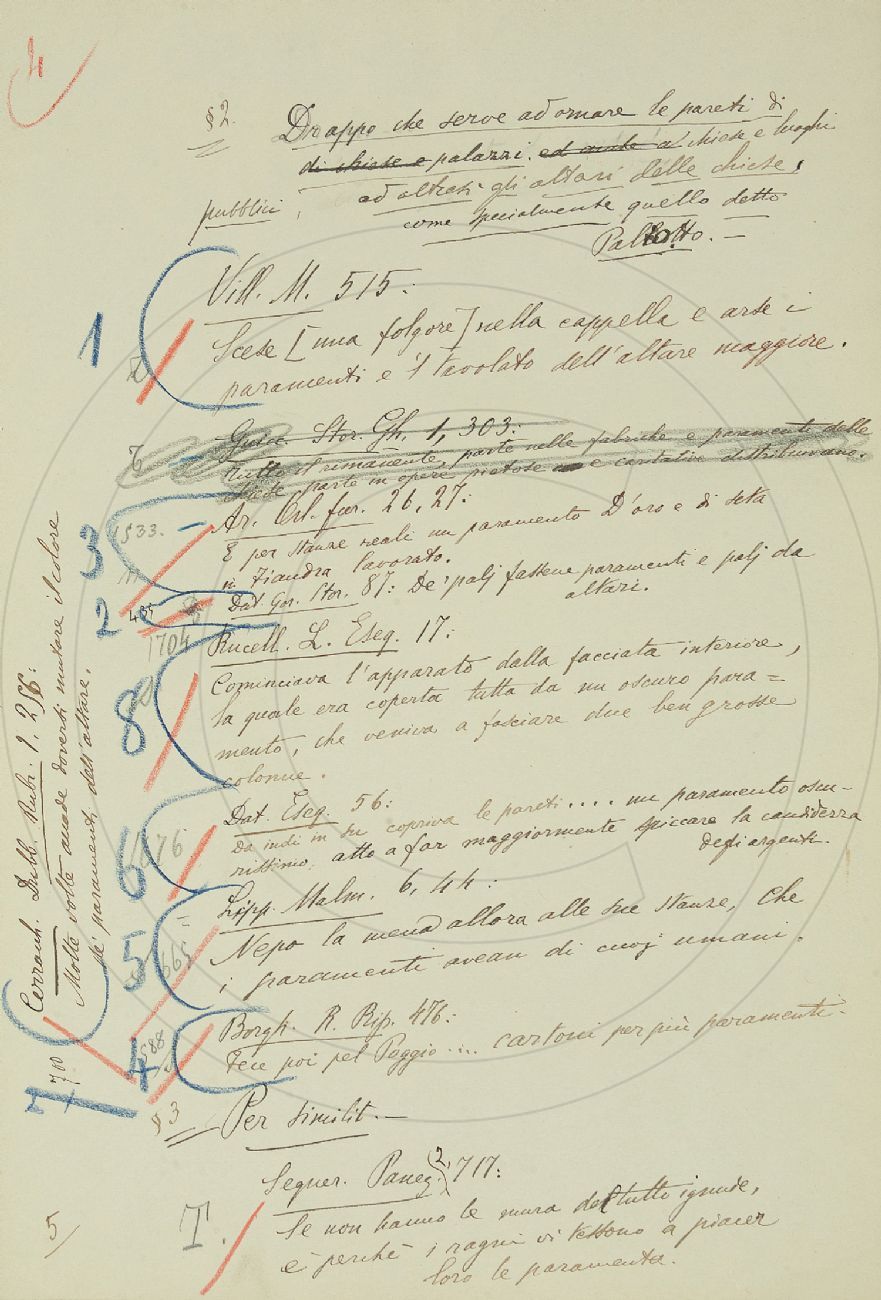 4
§ 2.
Drappo che serve ad ornare le pareti di
di chiese e palazzi. ed anche a chiese e luoghi
pubblici, ad altresì gli altari delle chiese,
come specialmente quello detto
Palliotto. —
1
Vill. M. 515:
Scese [una folgore] nella cappella e arse i
paramenti e 'l tavolato dell'altare maggiore.
Guicc. Stor. 1, 303:
tutto il rimanente, parte nelle fabriche e paramenti delle
chiese parte in opere pietose e caritative distribuivano.
3
1533.
Ar. Orl. fur. 26, 27:
E per stanze reali un paramento D'oro e di seta
in Fiandra lavorato.
2
Dat. Gor. Stor. 87: De' palj fassene paramenti e palj da
altari.
8
1704
Rucell. L. Eseq. 17:
Cominciava l'apparato dalla facciata interiore,
la quale era coperta tutta da un oscuro para=
mento, che veniva a fasciare due ben grosse
colonne.
6
1676
Dat. Eseq. 56:
da indi in su copriva le pareti .... un paramento oscu-
rissimo, atto a far maggiormente spiccare la candidezza
degli argenti.
5
1665
Lipp. Malm. 6, 44:
Nepo la menò allora alle sue stanze, che
i paramenti avean di cuoj umani.
4
1588
Borgh. R. Rip. 476:
Fece poi pel Poggio .... cartoni per più paramenti.
7
700
Cerrach. Dubb. Rubr. 1, 256:
Molte volte accade doversi mutare il colore
de' paramenti dell'altare.
§ 3
Per similit. —
Segner. Paneg. 2, 717:
T.
Se non hanno le mura del tutto ignude,
è perchè i ragni vi tessono a piacer
loro le paramenta.
5